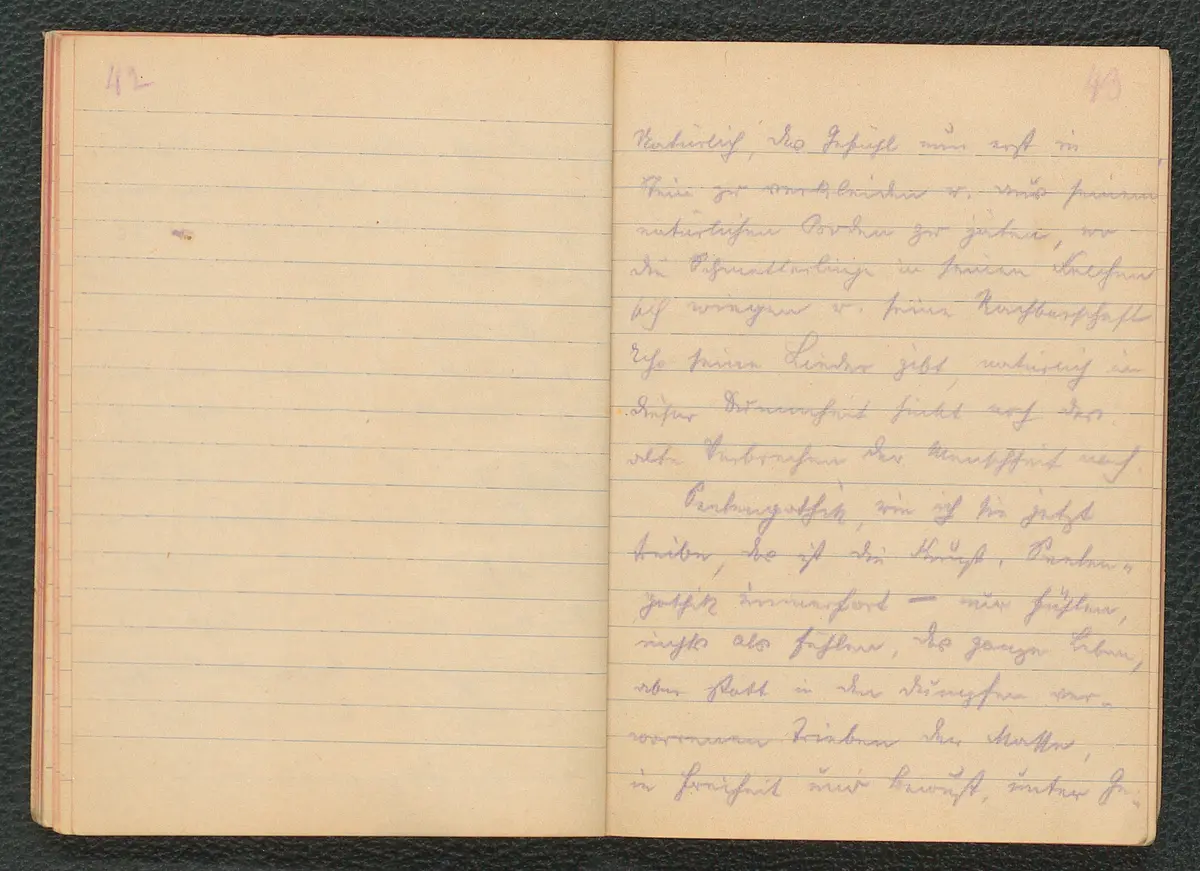 42
43
Natürlich, das Gefühl nun erst in
Stein zu verkleiden u. aus seinem
natürlichen Boden zu jäten, wo
die Schmetterlinge in seinen Kelchen
sich wiegen u. seine Nachbarschaft
Echo seine Lieder gibt, natürlich in
dieser Dummheit hinkt noch das
alte Verbrechen der Menschheit nach.
Seelengothik, wie ich sie jetzt
treibe, das ist die Kunst. Seelen-
gothik immerfort — nur fühlen,
nichts als fühlen, das ganze Leben,
aber statt in den dumpfen ver-
worrenen Trieben der Masse,
in Freiheit und bewußt, unter Ge-